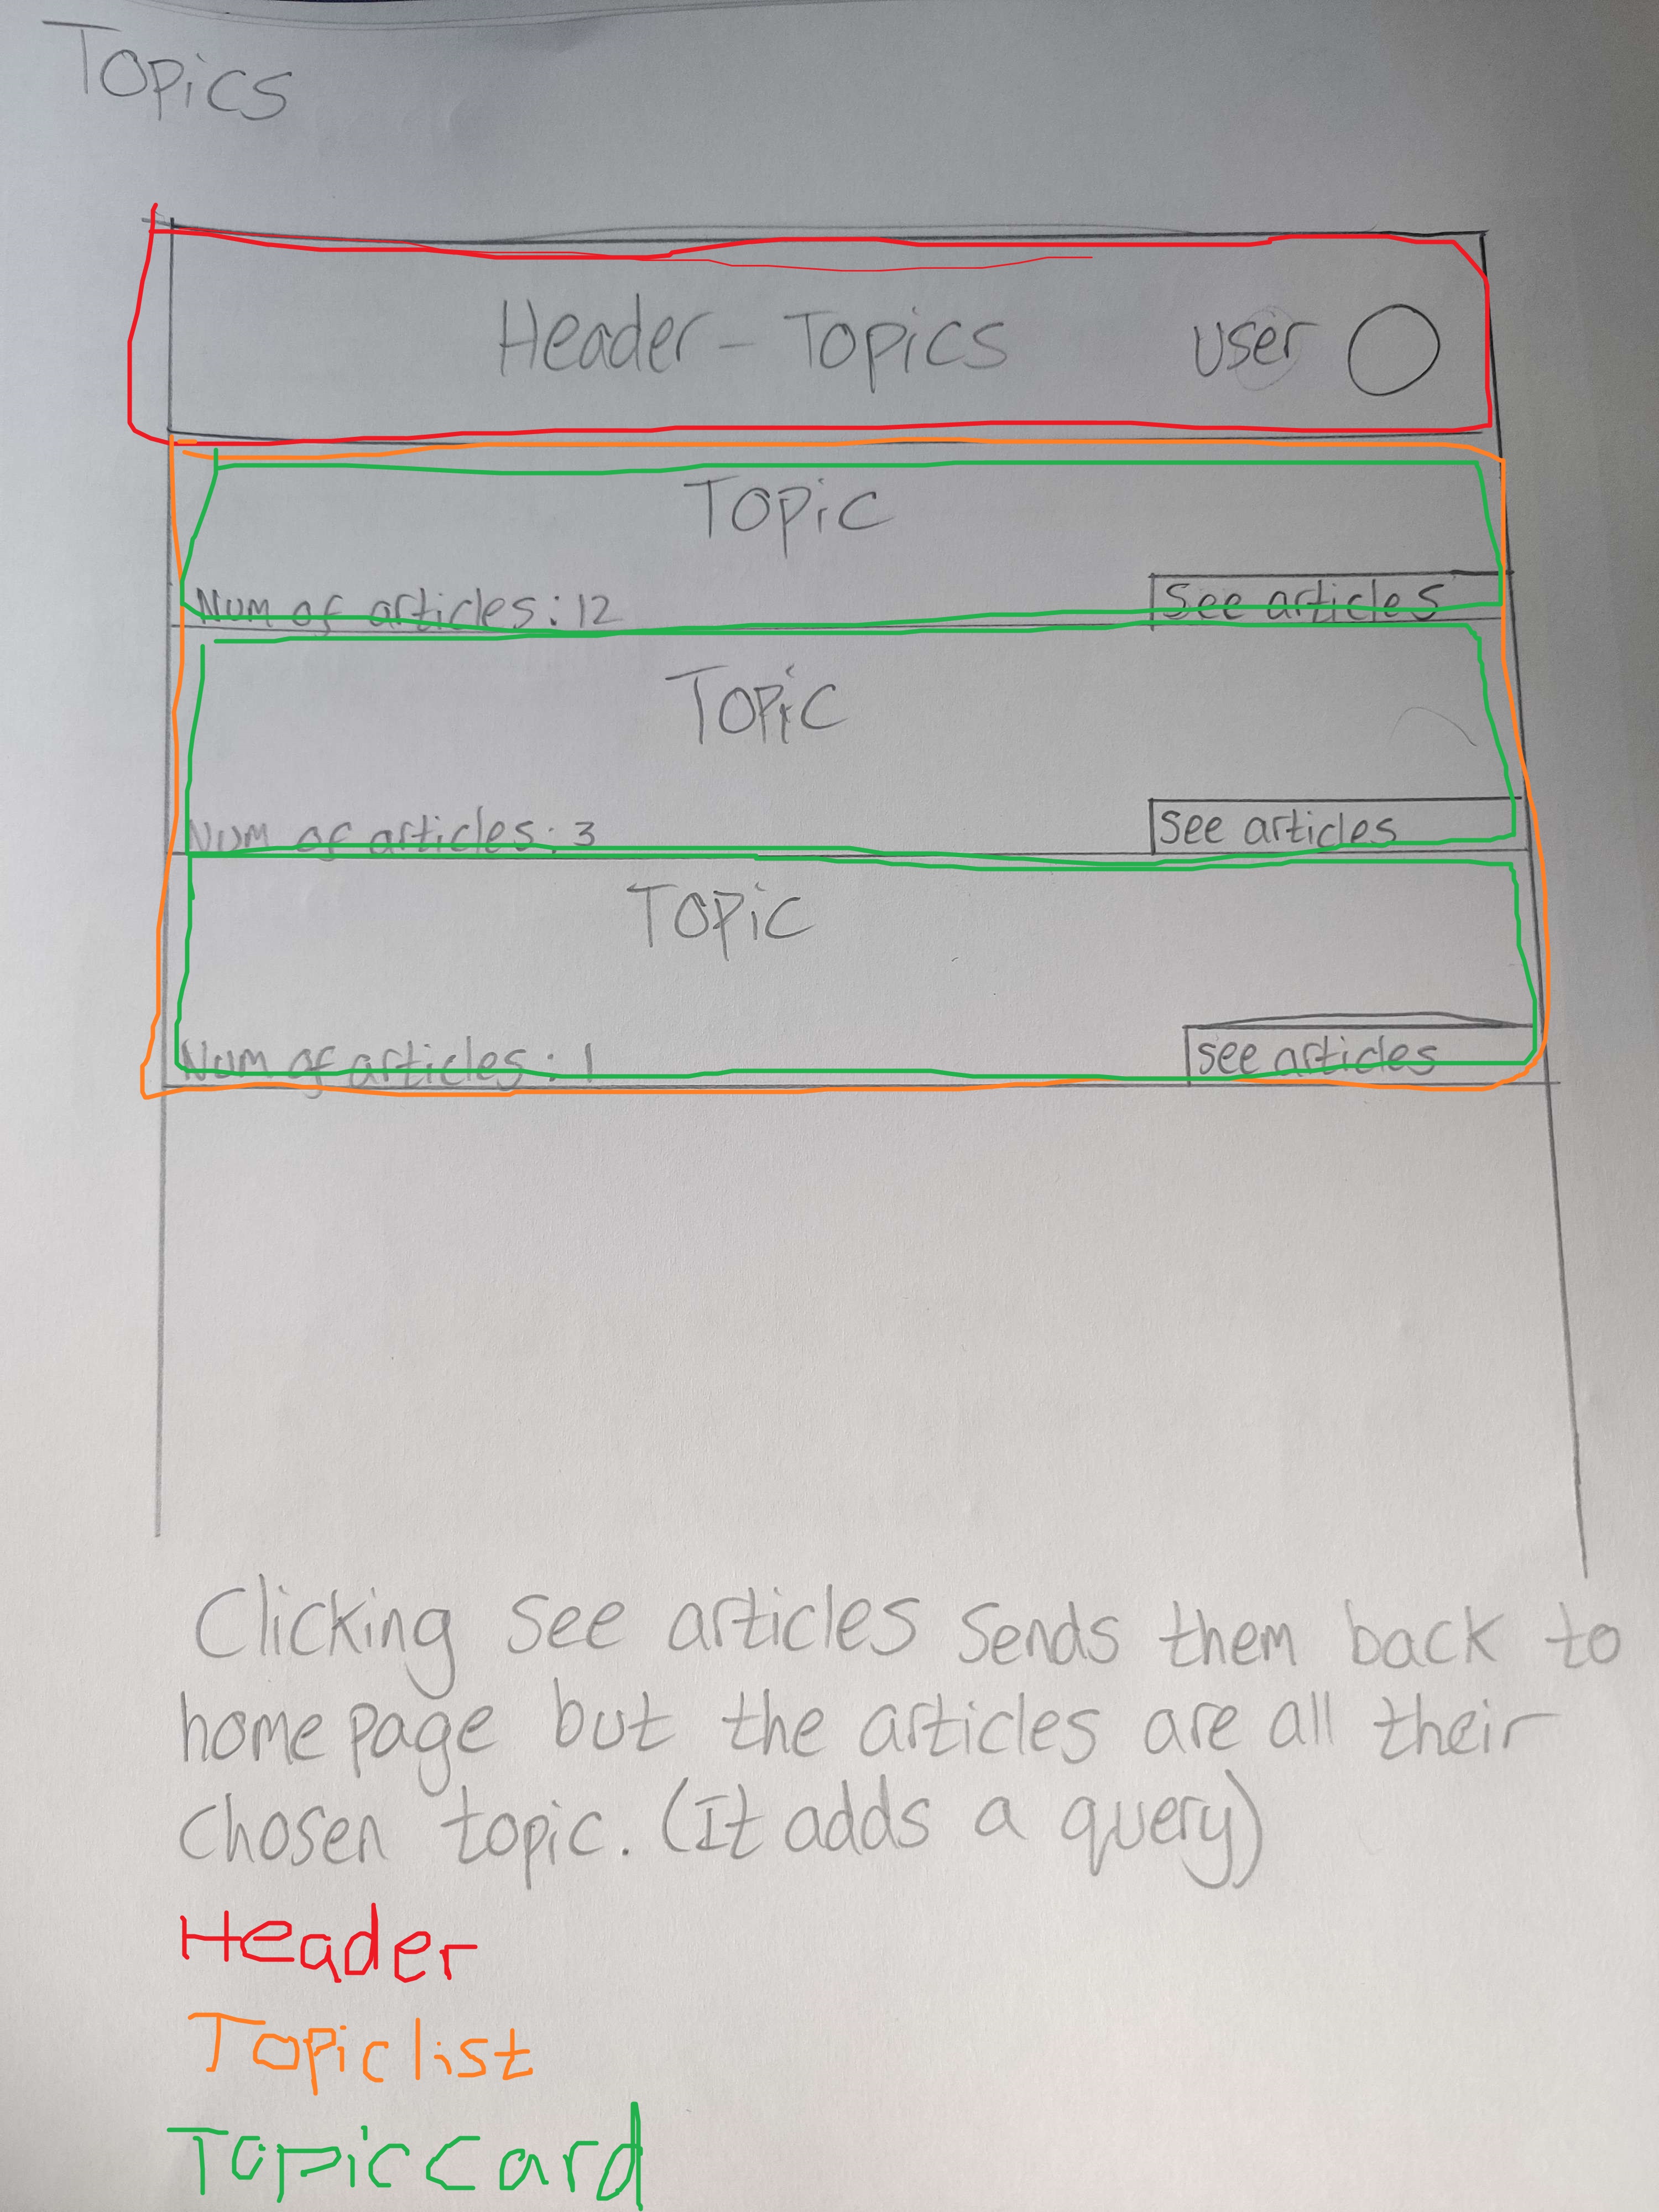 Topics
Header - Topics user
Topic
Num of articles: 12 See articles
Topic
Num of articles: 3 See articles
Topic
Num of articles: 1 see articles
Clicking see articles sends them back to
home page but the articles are all their
chosen topic. (It adds a query)
Header
Topic list
Topic Card